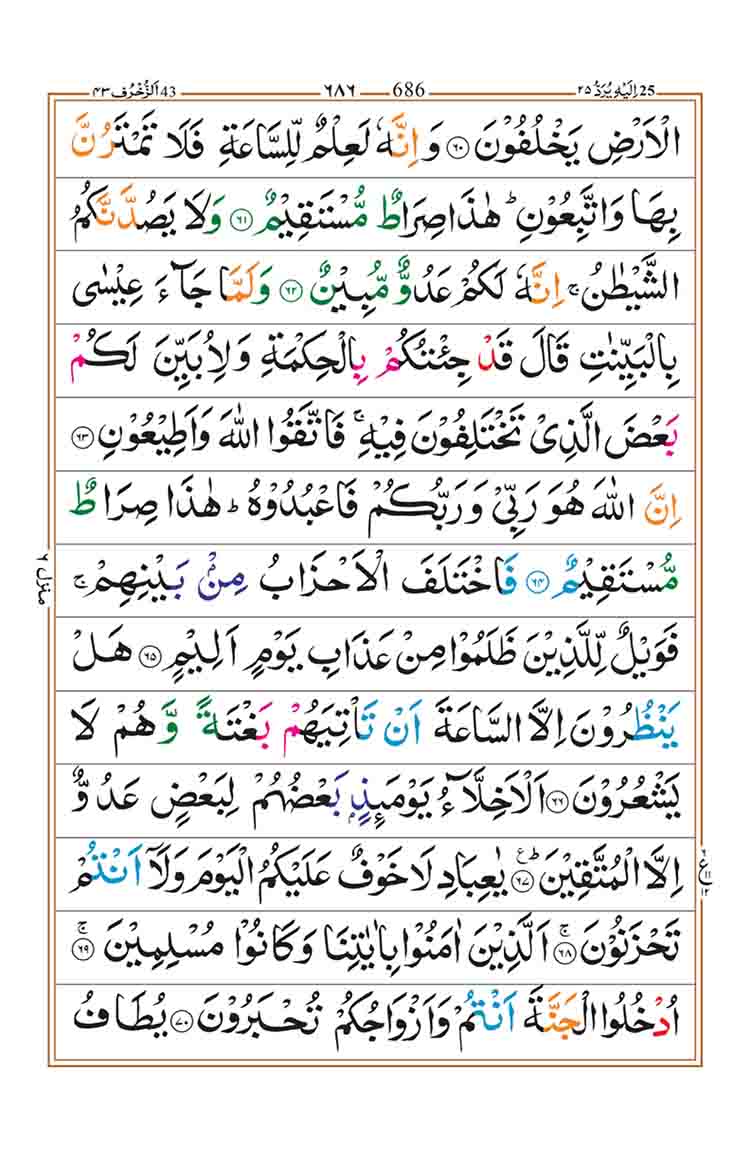 25 اِلَيْهِ يُرَدُّ ٢٥ 686 ٦٨٦ 43 اَلزُّخْرُف ٤٣
الْاَرْضِ يَخْلُفُوْنَ ۞۶۰ وَ اِنَّهٗ لَعِلْمٌ لِّلسَّاعَةِ فَلَا تَمْتَرُنَّ
بِهَا وَاتَّبِعُوْنِ ؕ هٰذَا صِرَاطٌ مُّسْتَقِيْمٌ ۞۶۱ وَلَا يَصُدَّنَّكُمُ
الشَّيْطٰنُ ۚ اِنَّهٗ لَكُمْ عَدُوٌّ مُّبِيْنٌ ۞۶۲ وَلَمَّا جَآءَ عِيْسٰى
بِالْبَيِّنٰتِ قَالَ قَدْ جِئْتُكُمْ بِالْحِكْمَةِ وَلِاُبَيِّنَ لَكُمْ
بَعْضَ الَّذِىْ تَخْتَلِفُوْنَ فِيْهِ ۚ فَاتَّقُوا اللّٰهَ وَاَطِيْعُوْنِ ۞۶۳
اِنَّ اللّٰهَ هُوَ رَبِّىْ وَرَبُّكُمْ فَاعْبُدُوْهُ ؕ هٰذَا صِرَاطٌ
مُّسْتَقِيْمٌ ۞۶۴ فَاخْتَلَفَ الْاَحْزَابُ مِنْۢ بَيْنِهِمْ ۚ
فَوَيْلٌ لِّلَّذِيْنَ ظَلَمُوْا مِنْ عَذَابِ يَوْمٍ اَلِيْمٍ ۞۶۵ هَلْ
يَنْظُرُوْنَ اِلَّا السَّاعَةَ اَنْ تَاْتِيَهُمْ بَغْتَةً وَّ هُمْ لَا
يَشْعُرُوْنَ ۞۶۶ اَلْاَخِلَّآءُ يَوْمَئِذٍۢ بَعْضُهُمْ لِبَعْضٍ عَدُوٌّ
اِلَّا الْمُتَّقِيْنَ ؕ ۞۶۷ ع يٰعِبَادِ لَا خَوْفٌ عَلَيْكُمُ الْيَوْمَ وَلَاۤ اَنْتُمْ
تَحْزَنُوْنَ ۚ ۞۶۸ اَلَّذِيْنَ اٰمَنُوْا بِاٰيٰتِنَا وَكَانُوْا مُسْلِمِيْنَ ۚ ۞۶۹
اُدْخُلُوا الْجَنَّةَ اَنْتُمْ وَاَزْوَاجُكُمْ تُحْبَرُوْنَ ۞۷۰ يُطَافُ
منزل ٦
ع ١١ ١٢